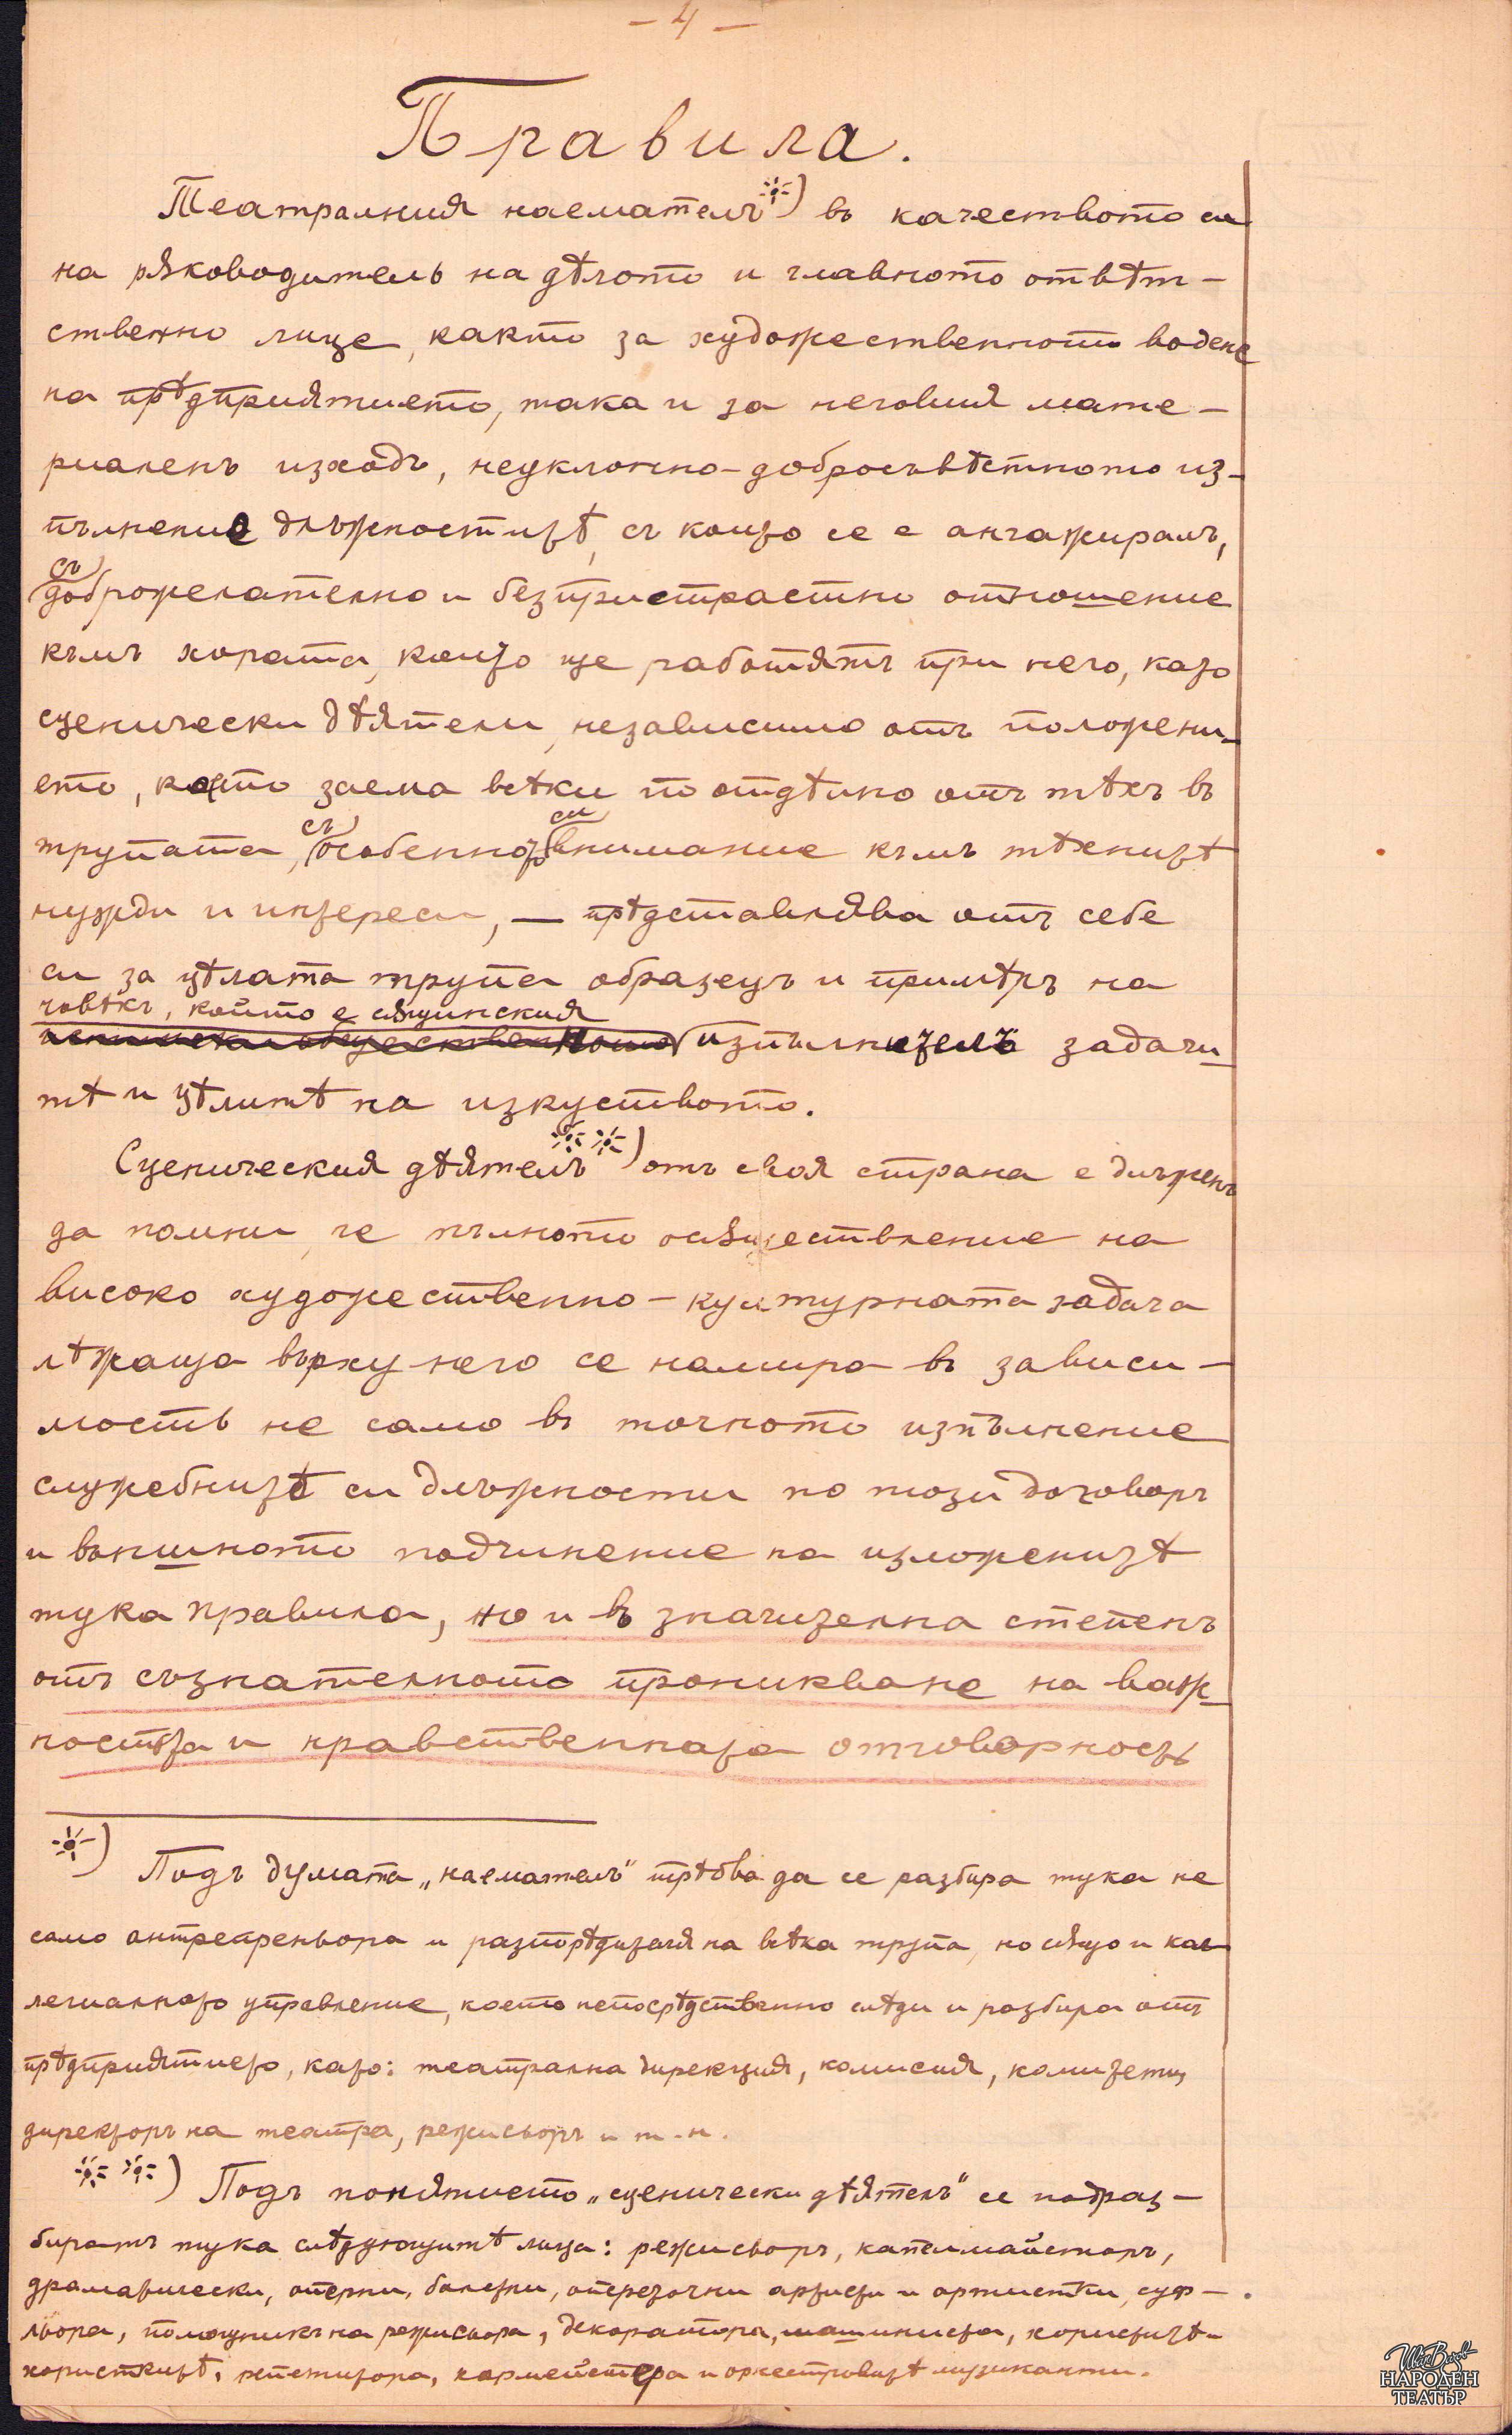 – 4 –
Правила.
Театралния наемателъ*) въ качеството си
на рѫководитель на дѣлото и главното отвѣт–
ственно лице, както за художественното водене
на прѣдприятието, така и за неговия мате–
риаленъ изходъ, неуклонно–добросъвѣстното из–
пълнение длъжноститѣ, съ които се е ангажиралъ,
съ
доброжелателно и безпристрастно отношение
къмъ хората, които ще работятъ при него, като
сценически дѣятели, независимо отъ положени–
ето, което заема всѣки по отдѣлно отъ тѣхъ въ
съ си
трупата, особенното внимание къмъ тѣхнитѣ
нужди и интереси, — прѣдставлява отъ себе
си за цѣлата трупа образецъ и примѣръ на
човѣкъ, който е сѫщинския
изпълнителъ задачи–
тѣ и цѣлитѣ на изкуството.
Сценическия дѣятелъ **) отъ своя страна е длъженъ
да помни, че пълното осѫществление на
високо художественно–културната задача
лѣжаща върху него се намира въ зависи–
мость не само въ точното изпълнение
служебнитѣ си длъжности по този договоръ
и външното подчинение на изложенитѣ
тука правила, но и въ значителна степенъ
отъ съзнателното проникване на важ–
ностьта и нравственната отговорность
*) Подъ думата „наемателъ" трѣбва да се разбира тука не
само антрепреньора и разпорѣдителя на всѣка трупа, но сѫщо и кол–
легиалното управление, което непосрѣдственно слѣди и разбира отъ
прѣдприятието, като: театрална дирекция, комисия, комитетъ,
директоръ на театра, режисьоръ и т. н.
**) Подъ понятието „сценически дѣятелъ" се подраз–
биратъ тука слѣдующитѣ лица: режисьоръ, капелмайсторъ,
драматически, оперни, балетни, оперетъчни артисти и артистки, суф–
льора, помощникъ на режисьора, декоратора, машиниста, хориститѣ–
хористкитѣ, репетитора, хормейстера и оркестровитѣ музиканти.
ИвВазов
НАРОДЕН
ТЕАТЪР